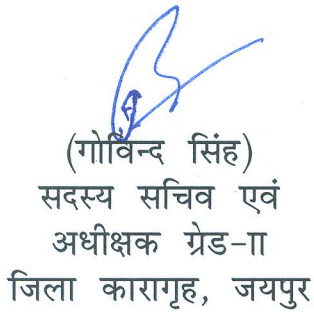 (गोविन्द सिंह)
सदस्य सचिव एवं
अधीक्षक ग्रेड-II
जिला कारागृह, जयपुर